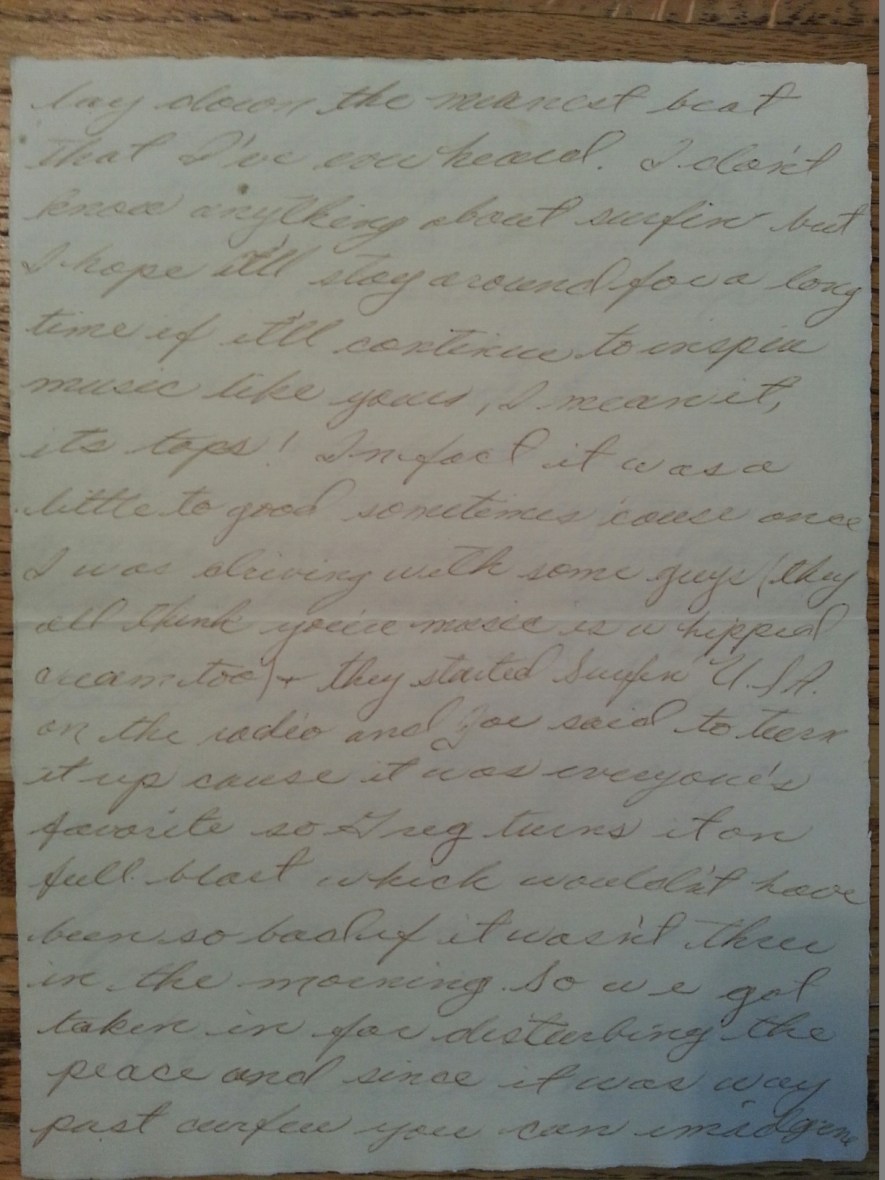 lay down the meanest beat
that I've ever heard. I don't
know anything about surfin' but
I hope it'll stay around for a long
time if it'll continue to inspire
music like yours, I mean it,
its tops! In fact it was a
little to good sometimes 'cause once
I was driving with some guys (they
all think you're music is a hipped
cream too) + they started Surfin' U.S.A.
on the radio and Joe said to turn
it up cause it was everyone's
favorite so Greg turns it on
full blast which wouldn't have
been so bad if it wasn't three
in the morning. So we got
taken in for disturbing the
peace and since it was way
past curfew you can imadgine